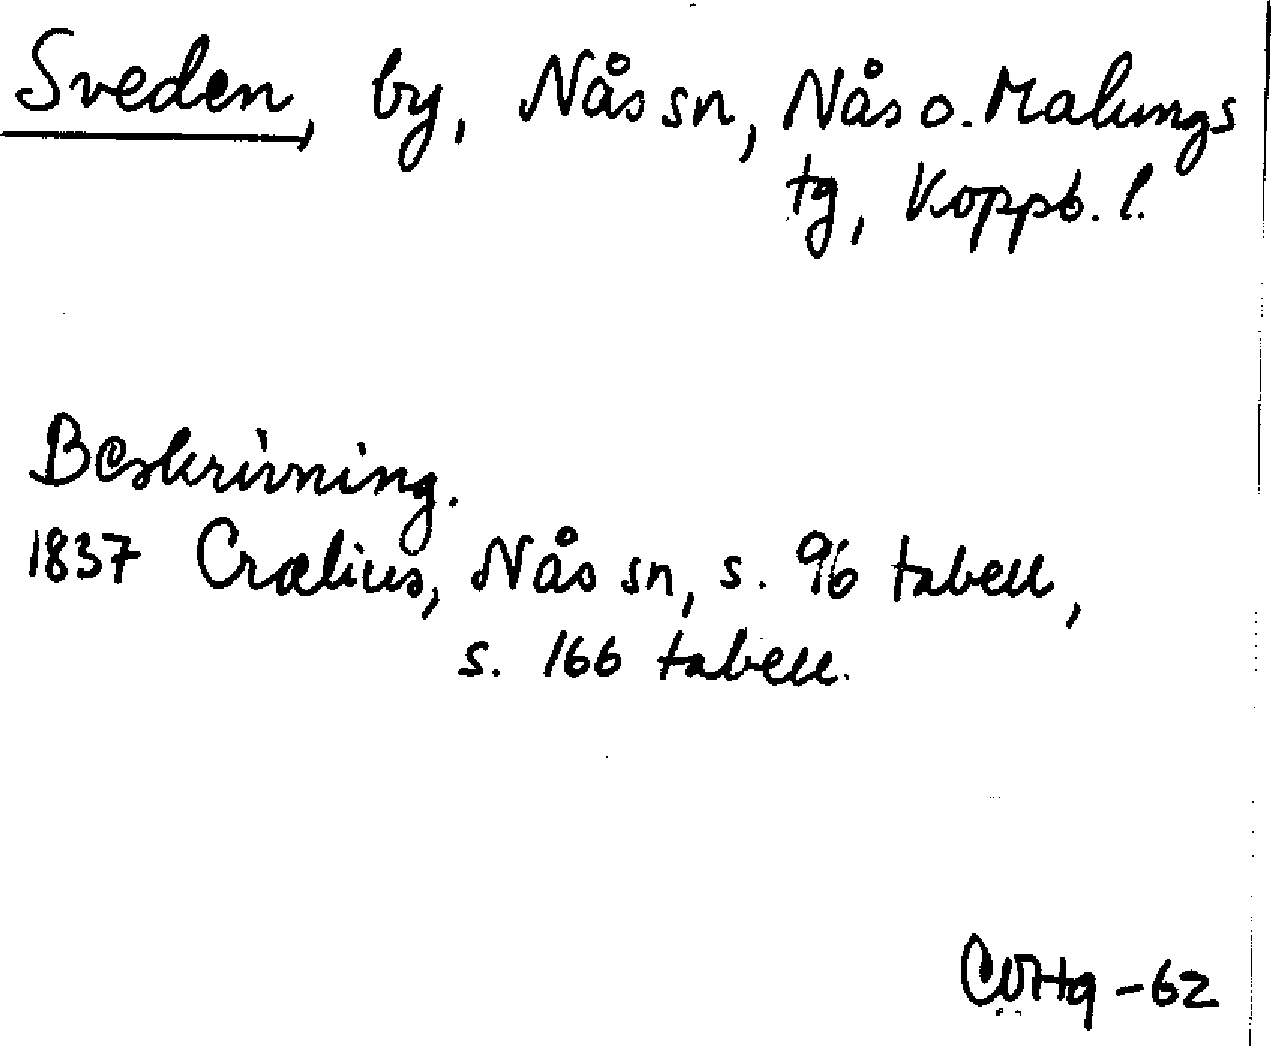 Sveden, by, Nås sn, Nås o. Malungs
tg, Koppb. l.
Beskrivning.
1837 Crælius, Nås sn, s. 96 tabell,
s. 166 tabell.
-62